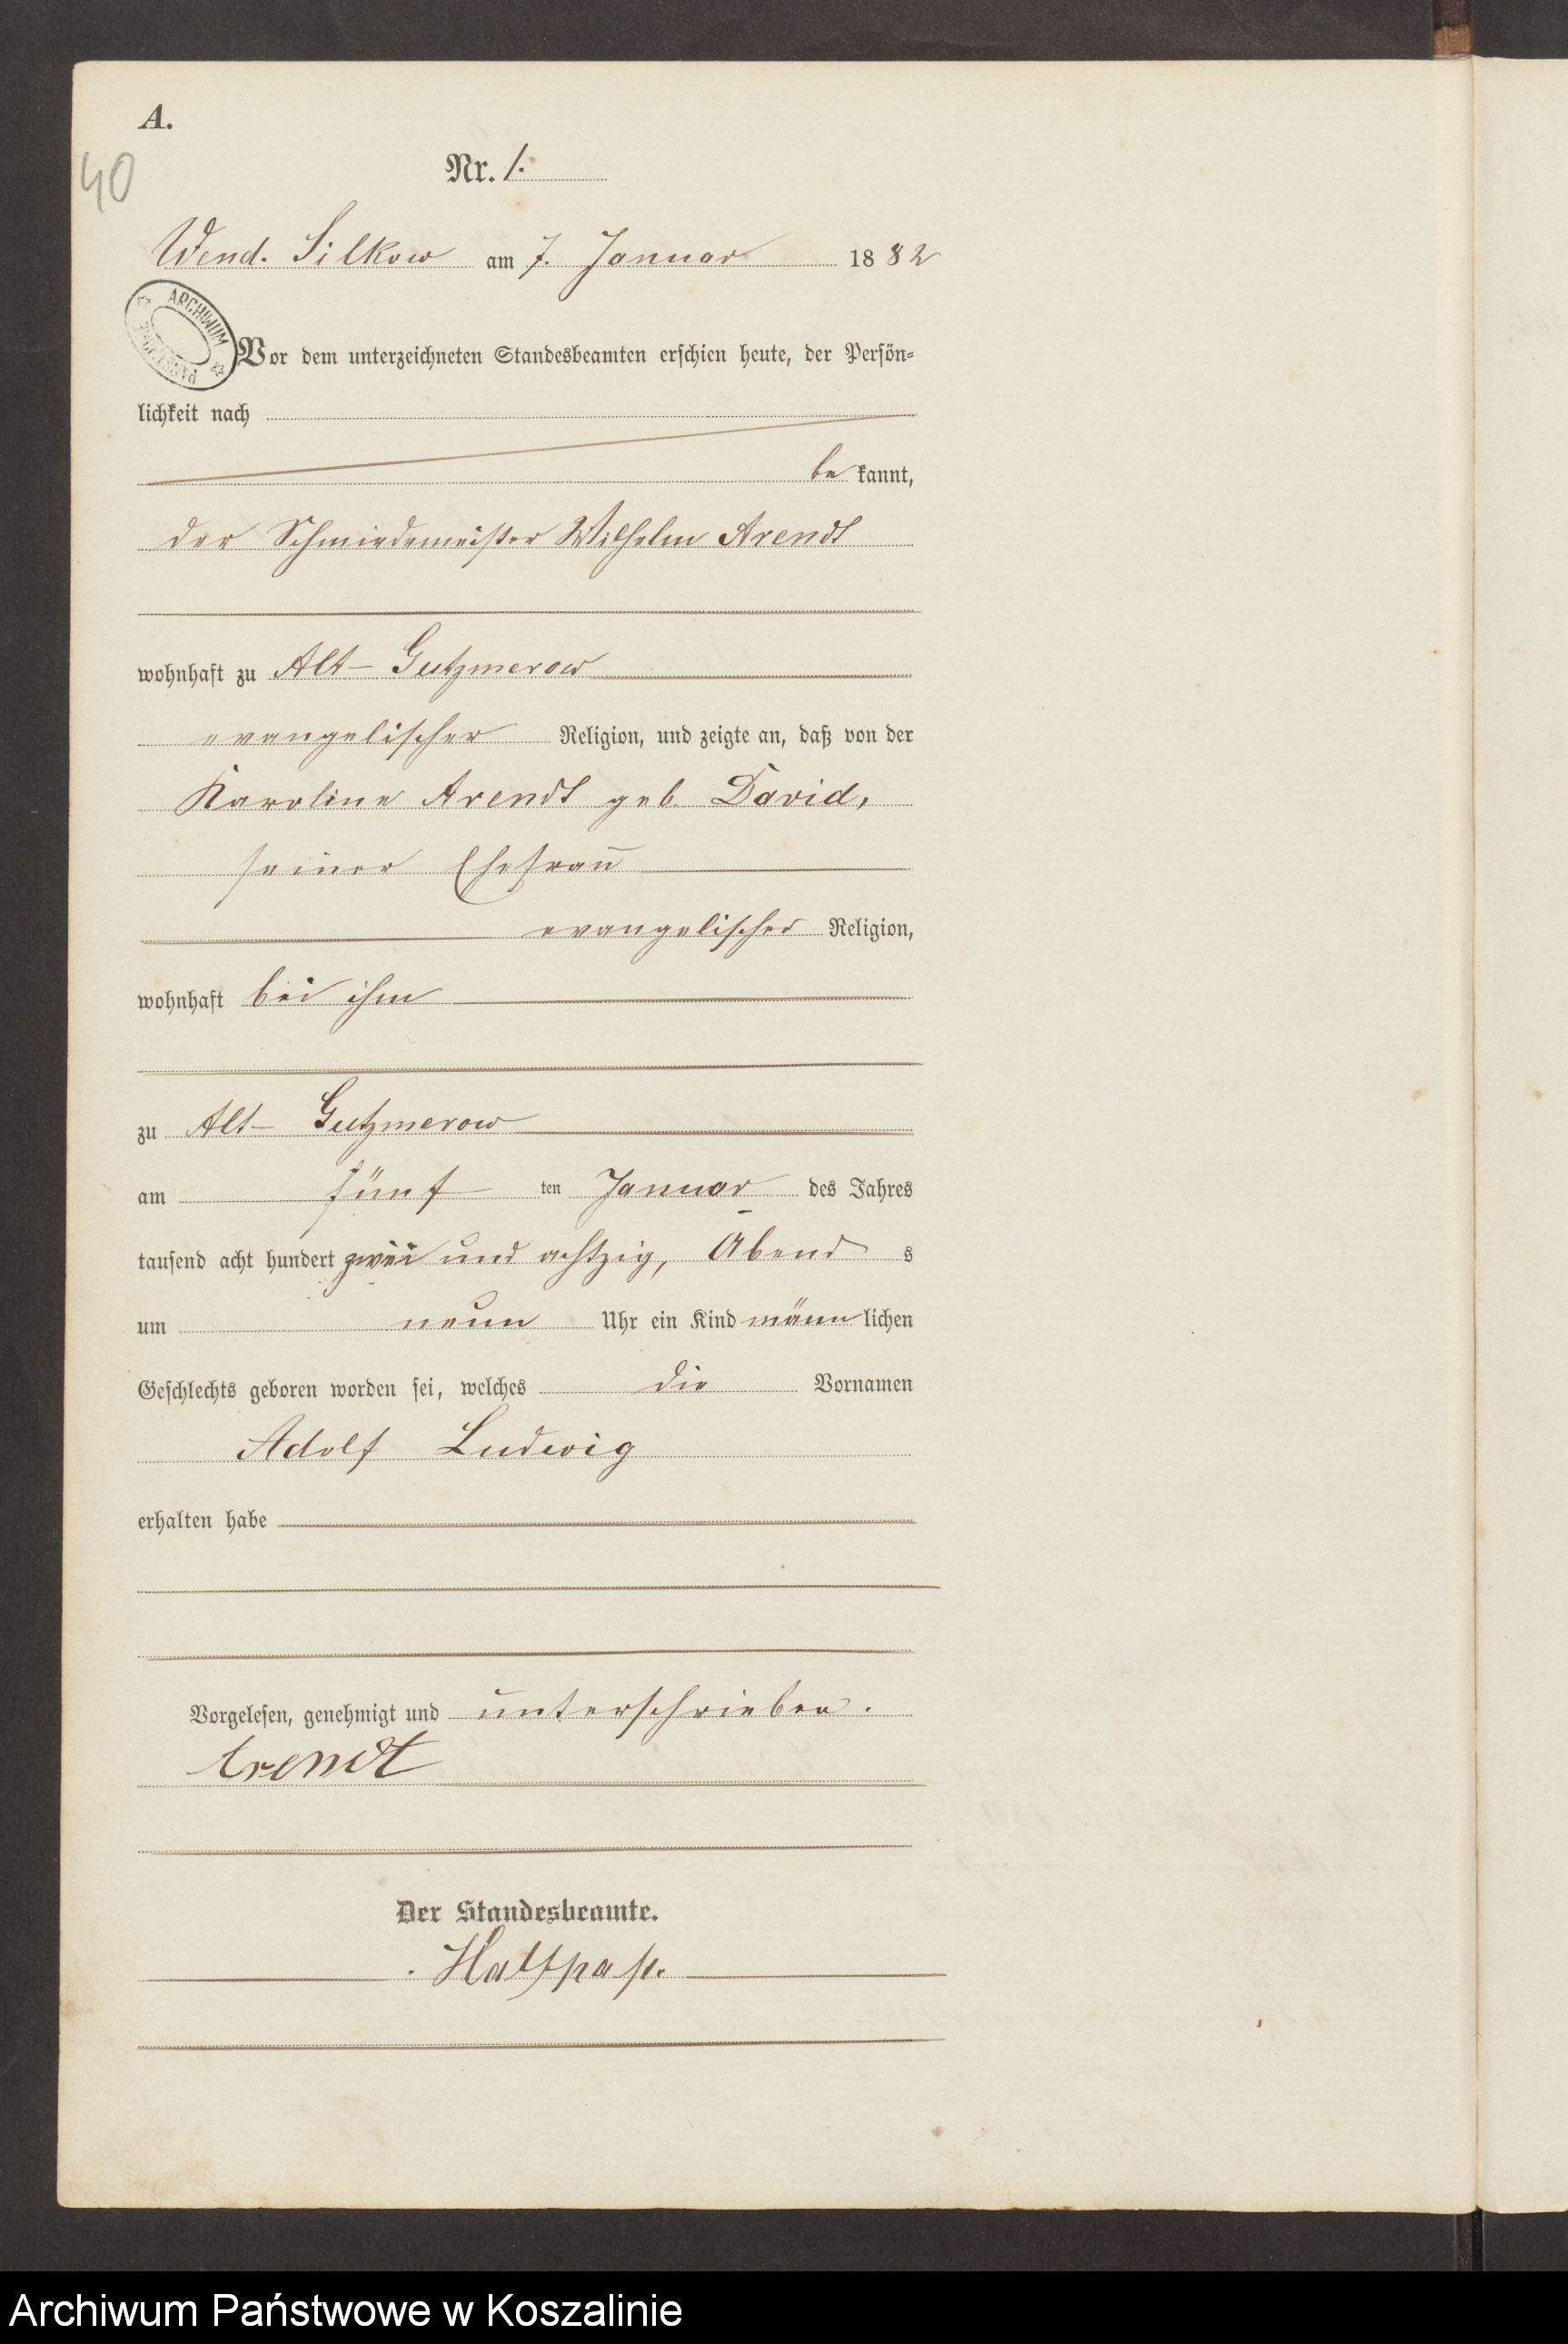 A.
40
Nr. 1.
Wend. Silkow am 7. Januar 1882
ARCHIWUM
Vor dem unterzeichneten Standesbeamten erschien heute, der Persön-
lichkeit nach
bekannt,
der Schmiedemeister Wilhelm Arendt
wohnhaft zu Alt-Gutzmerow
evangelischer Religion, und zeigte an, daß von der
Karoline Arendt geb. David,
seiner Ehefrau
evangelischer Religion,
wohnhaft bei ihm
zu Alt-Gutzmerow
am fünften Januar des Jahres
tausend acht hundert zwei und achtzig, Abends
um neun Uhr ein Kind männlichen
Geschlechts geboren worden sei, welches die Vornamen
Adolf Ludwig
erhalten habe
Vorgelesen, genehmigt und unterschrieben.
Arendt
Der Standesbeamte.
Archiwum Państwowe w Koszalinie